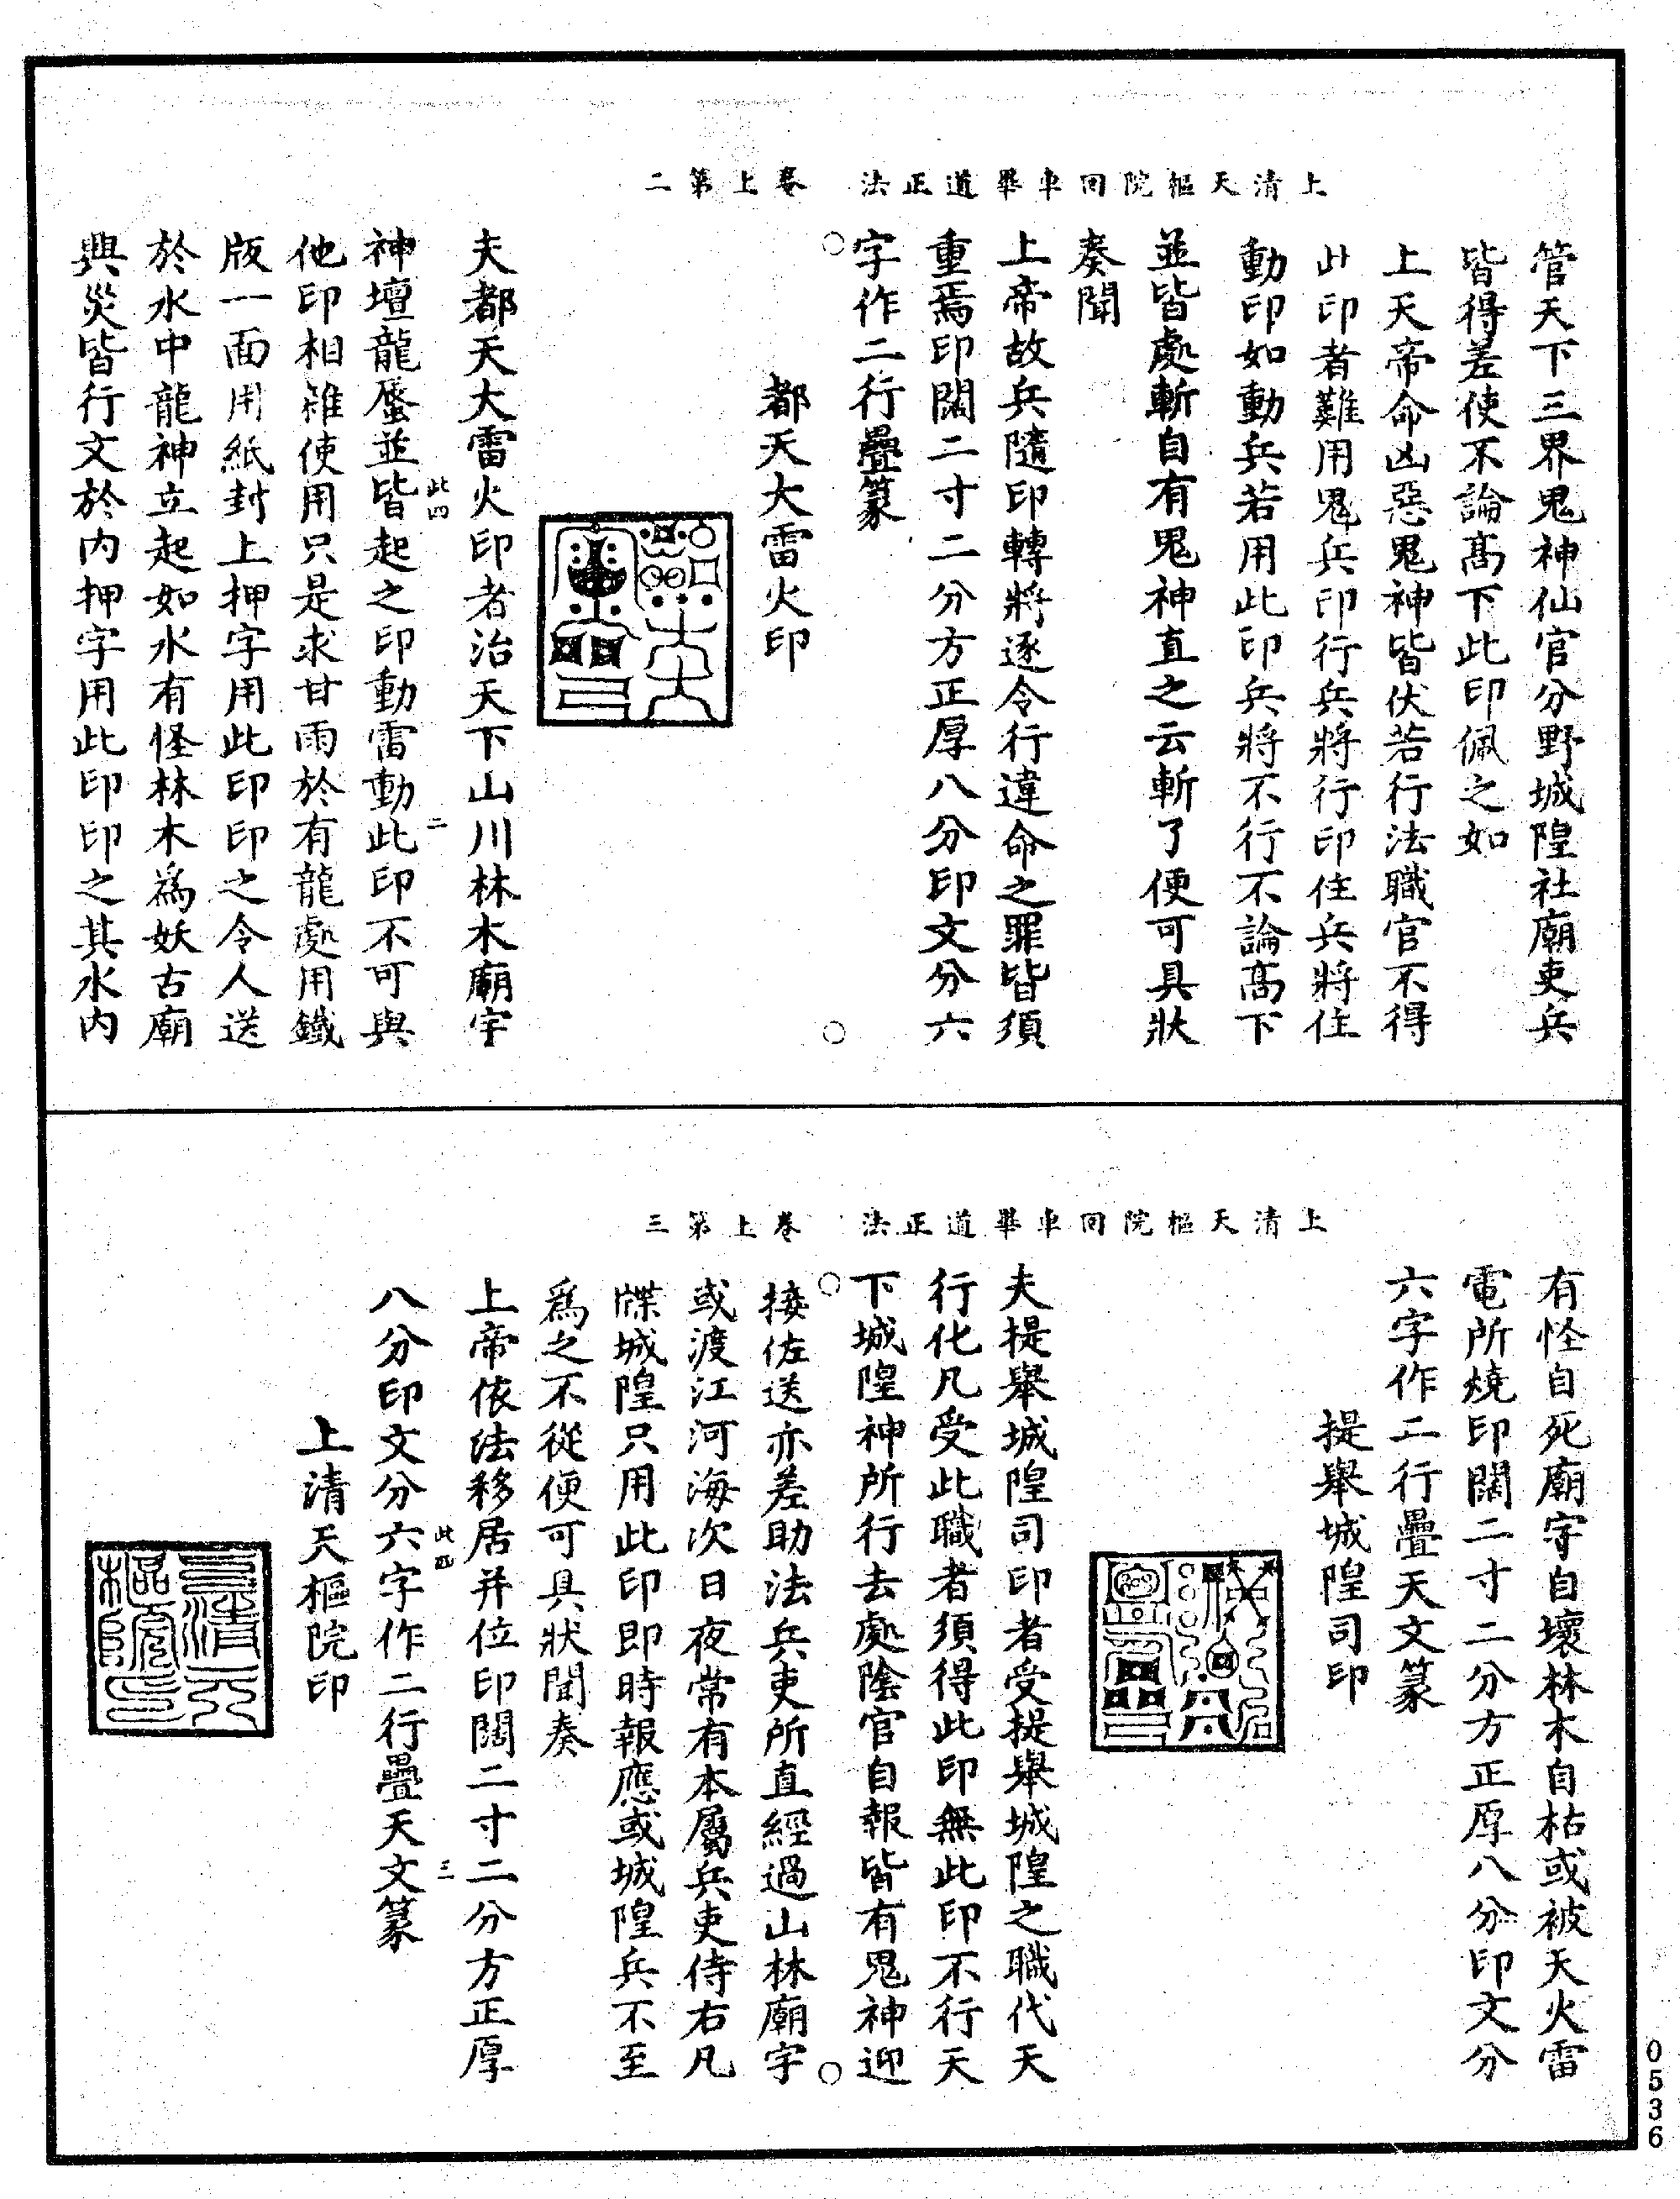 上清天樞院回車畢道正法　卷上第二
管天下三界鬼神仙官分野城隍社廟吏兵
皆得差使不論高下此印佩之如
上天帝命凶惡鬼神皆伏若行法職官不得
此印者難用鬼兵印行兵將行印住兵將住
動印如動兵若用此印兵將不行不論高下
並皆處斬自有鬼神直之云斬了便可具狀
奏聞
上帝故兵隨印轉將逐令行違命之罪皆須
重焉印闊二寸二分方正厚八分印文分六
字作二行疊篆
都天大雷火印
夫都天大雷火印者治天下山川林木廟宇
神壇龍蜃並皆起之印動雷動此印不可與
此四
二
他印相雜使用只是求甘雨於有龍處用鐵
版一面用紙封上押字用此印印之令人送
於水中龍神立起如水有怪林木爲妖古廟
興災皆行文於内押字用此印印之其水内
上清天樞院回車畢道正法　卷上第三
有怪自死廟宇自壞林木自枯或被天火雷
電所燒印闊二寸二分方正厚八分印文分
六字作二行疊天文篆
提舉城隍司印
夫提舉城隍司印者受提舉城隍之職代天
行化凡受此職者須得此印無此印不行天
下城隍神所行去處陰官自報皆有鬼神迎
接佐送亦差助法兵吏所直經過山林廟宇
或渡江河海次日夜常有本屬兵吏侍右凡
牒城隍只用此印即時報應或城隍兵不至
爲之不從便可具狀聞奏
上帝依法移居并位印闊二寸二分方正厚
八分印文分六字作二行疊天文篆
此四
三
上清天樞院印
上清天
樞院印
0536